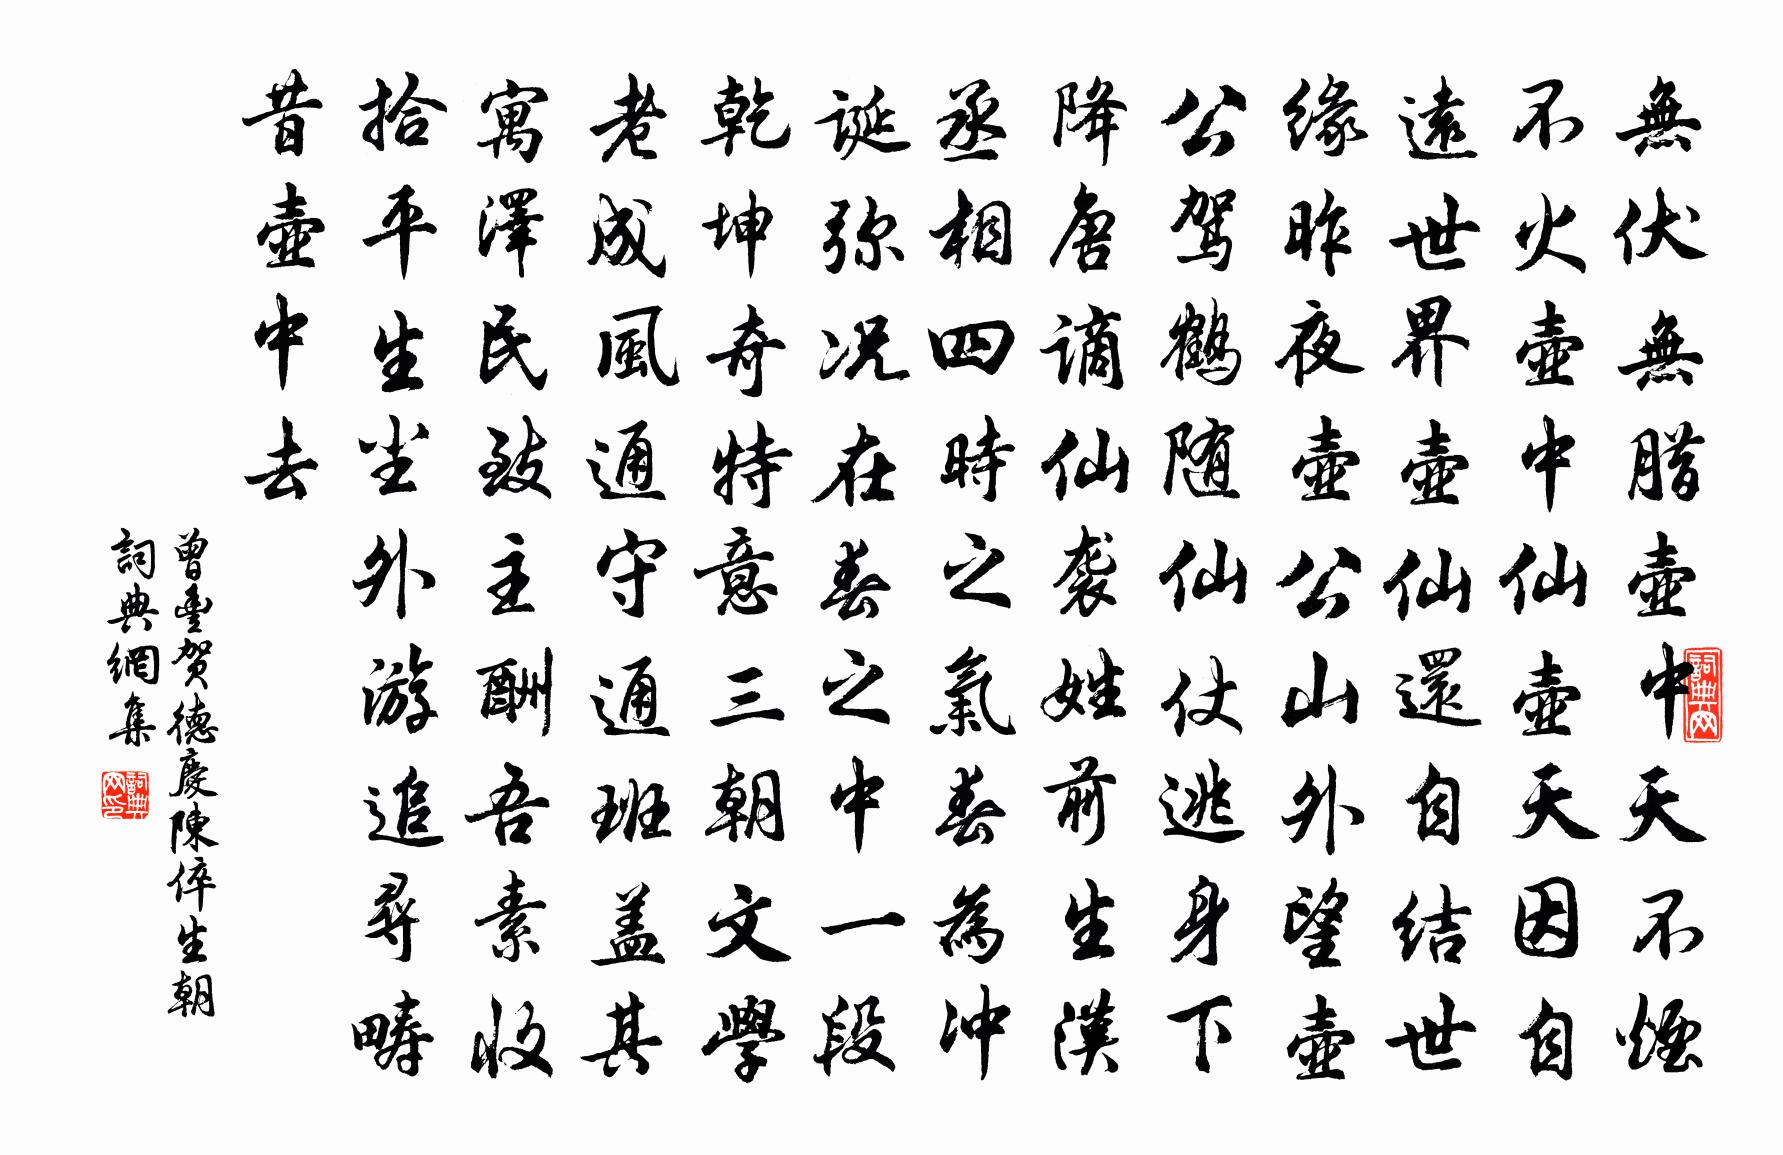 無伏無腊壺中天不煙
不火壺中仙壺天因自
遠世界壺仙還自結世
緣昨夜壺公山外望壺
公驾鶴随仙仗逃身下
降唐謫仙袭姓前生漢
丞相四時之氣春為冲
誕弥况在春之中一段
乾坤奇特意三朝文學
老成風通守通班盖其
寓澤民致主酬吾素收
拾平生坐外游追尋疇
昔壺中去
曾豐贺德慶陳倅生朝
詞典網集
詞典网
詞典网印